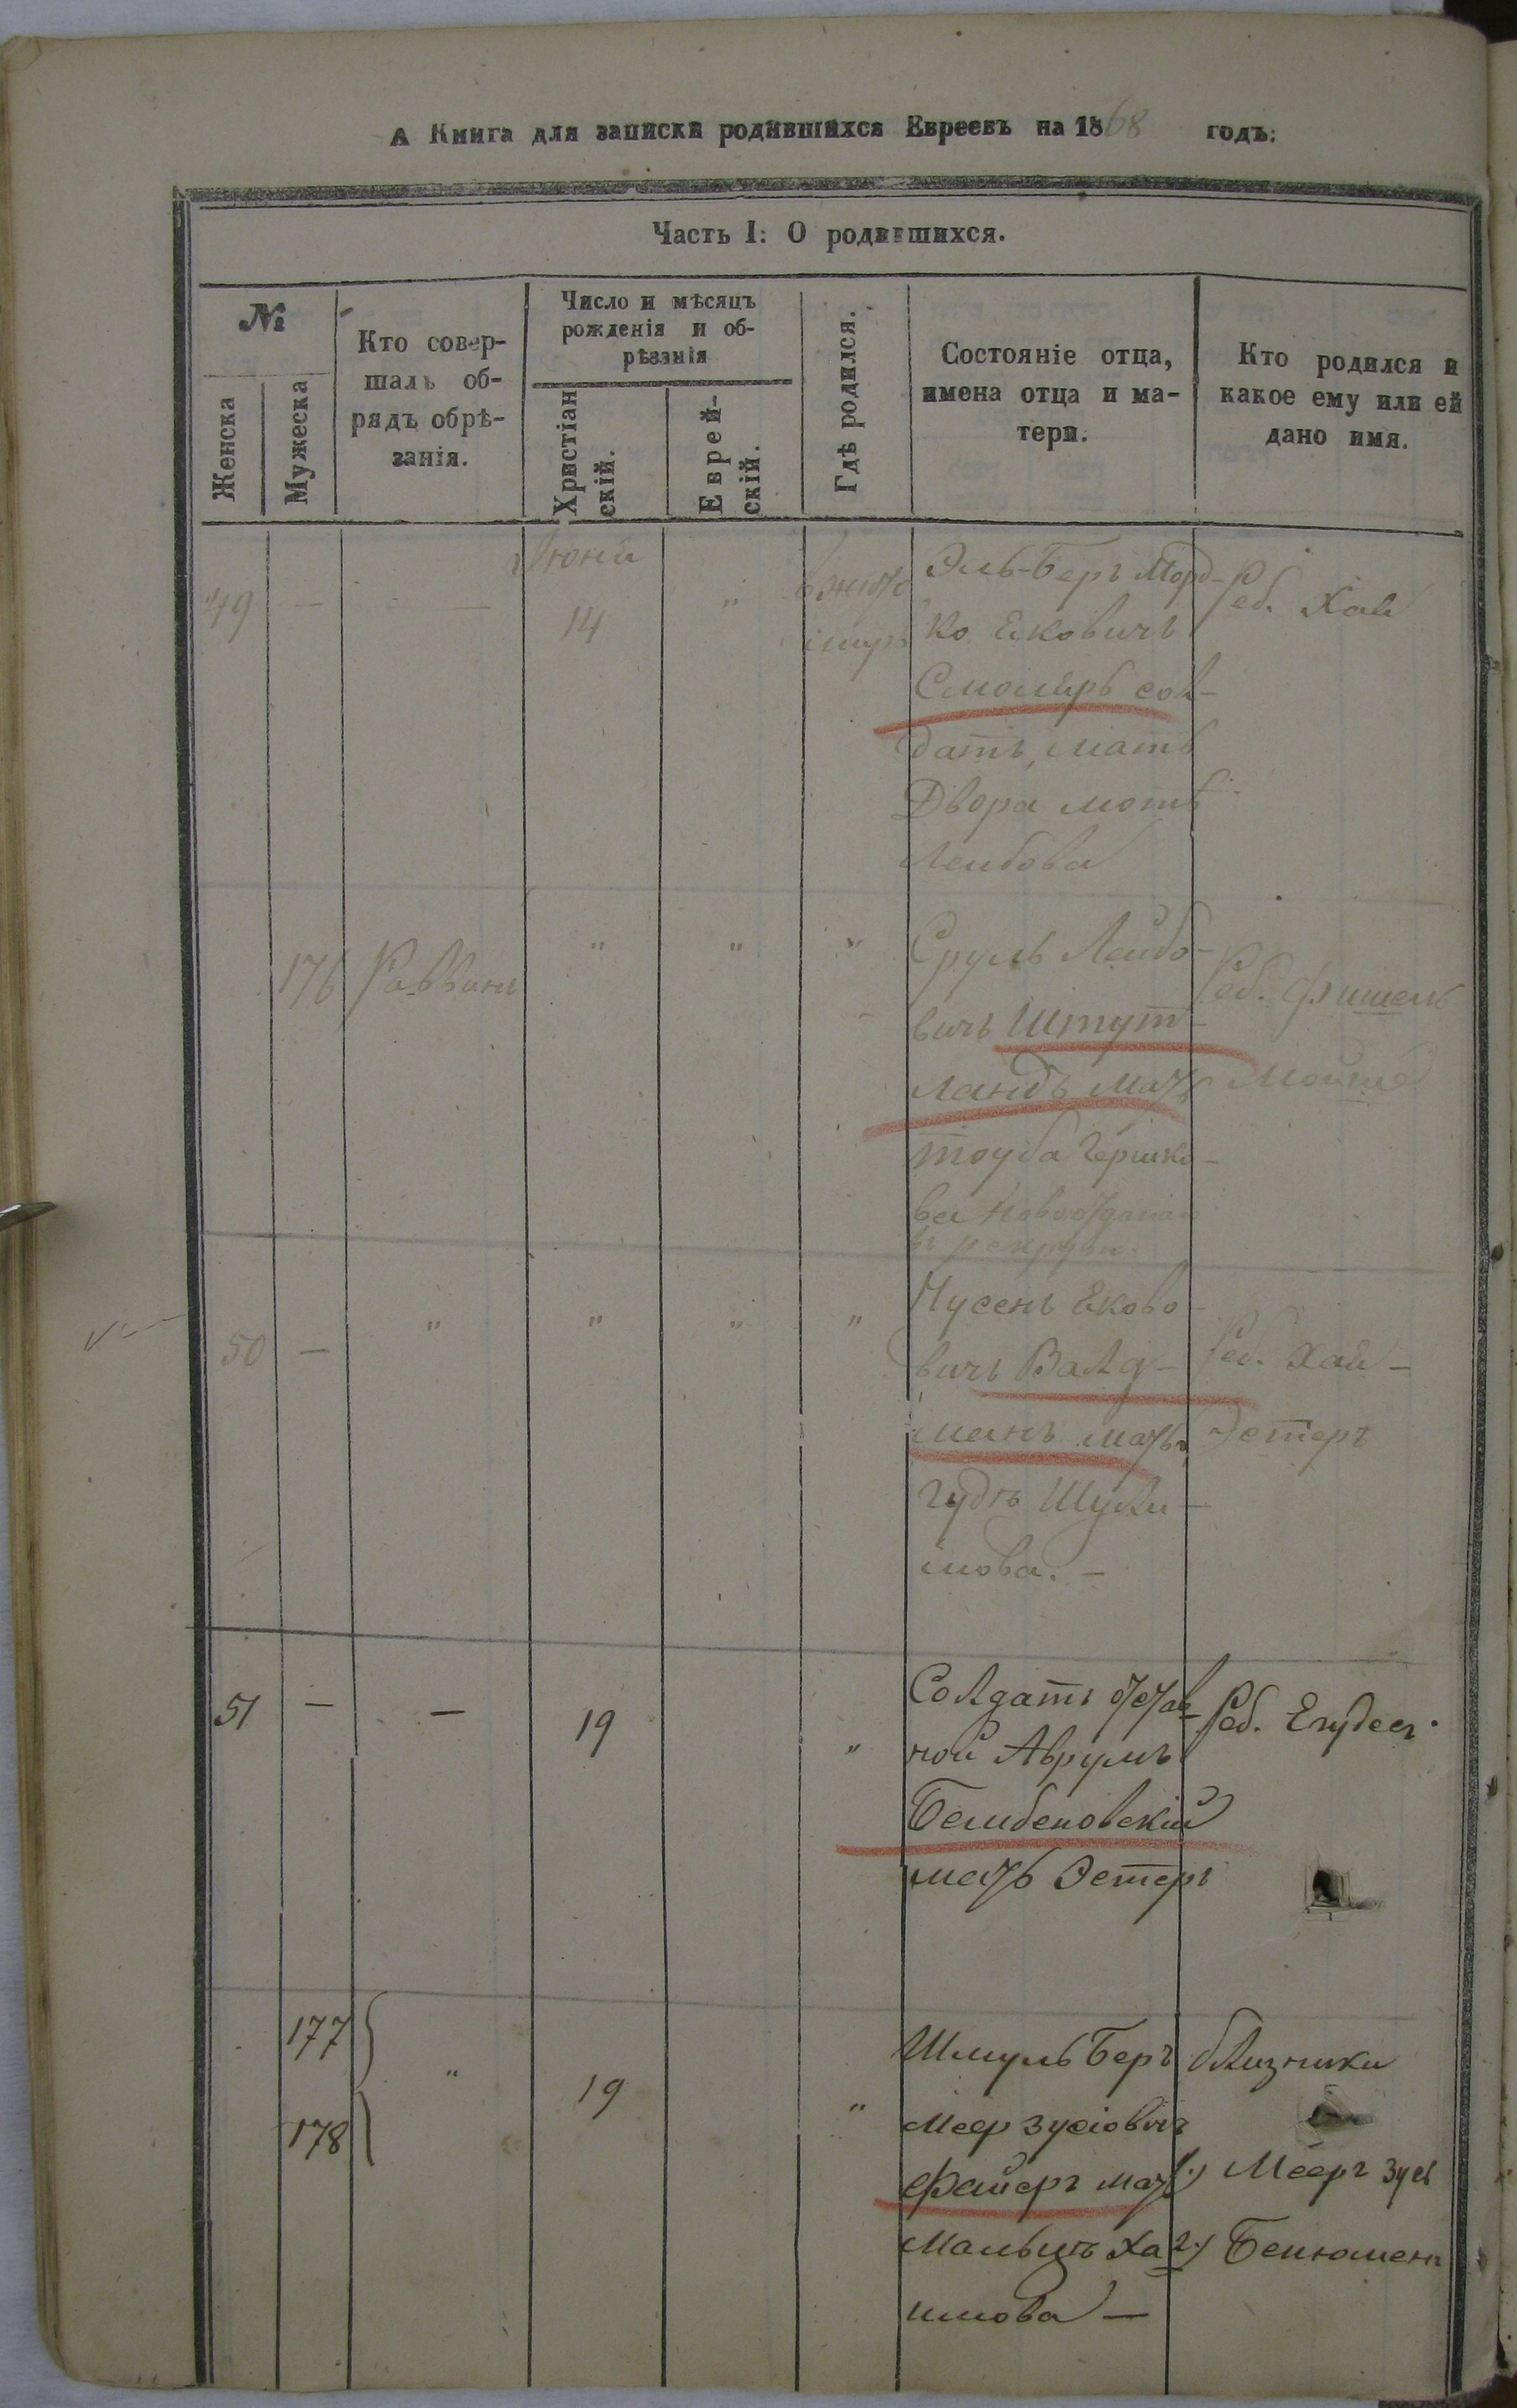 А Книга для записки родившихся Евреевъ на 1868 годъ:
Часть I: О родившихся.
№
Женска
Мужеска
Кто совер-
шалъ об-
рядъ обрѣ-
занія.
Число и мѣсяцъ
рожденія и об-
рѣзанія
Христіан
скій.
Еврей-
скій.
Гдѣ родился.
Состояніе отца,
имена отца и ма-
тери.
Кто родился и
какое ему или ей
дано имя.
49 — —
Іюня
14
"
Эль-Беръ Морд-
ко Ековичъ
Смоляръ сол-
датъ, мать
Двора Мотѣ
Лейбова
Реб. Хая
176 Раввинъ " " "
Сруль Лейбо-
вичъ Штут-
ландъ мать
Тоуба Гершко-
ва
въ рекруты.
Реб. Фишель
Мойше
50 — " " " "
Нусенъ Еково-
вичъ Валд-
манъ мать
Гудъ Шули-
мова. —
Реб. Хая-
Эстеръ
51 — — 19 "
Солдатъ отстав-
ной Аврумъ
Бембеновскій
мать Эстеръ
Реб. Ехудесъ.
177
178
" 19 "
Шмуль Беръ
Меер Зусіовичъ
Файеръ мать
Мальцъ Ха-
имова —
близники
1.) Мееръ Зусь
2.) Бенюменъ